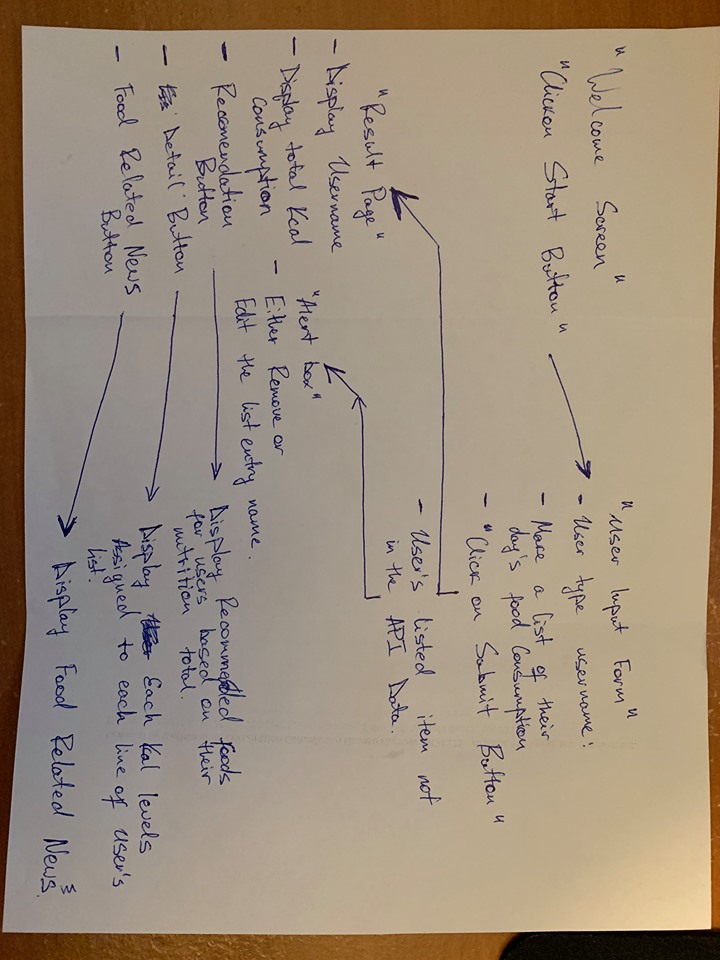 "Welcome Screen"
"Click on Start Button"
"User Input Form"
- User type username:
- Make a list of their
day's food Consumption
- "Click on Submit Button"
- User's listed item not
in the API Data.
"Result Page"
- Display Username
- Display total Kcal
Consumption
- Recomendation
Button
- Detail Button
- Food Related News
Button
"Alert box"
- Either Remove or
Edit the list entry name.
Display Recommended foods
for users based on their
nutrition total.
Display Each Kal levels
Assigned to each line of User's
list.
Display Food Related News.